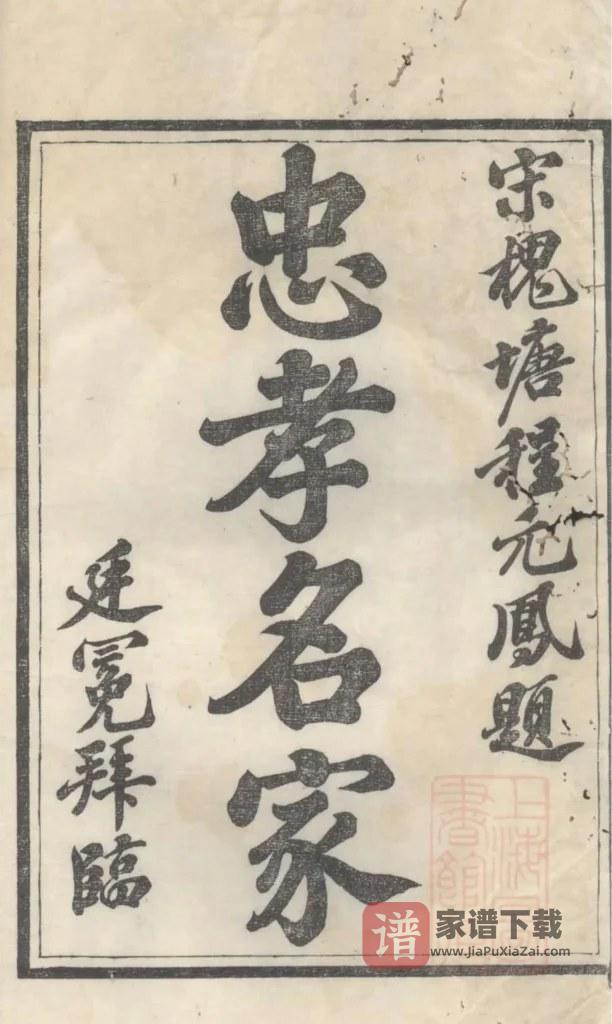 宋槐塘程元鳳題
忠孝名家
廷冕拜臨
上海
書館
谱
家谱下载
www.JiaPuXiaZai.com